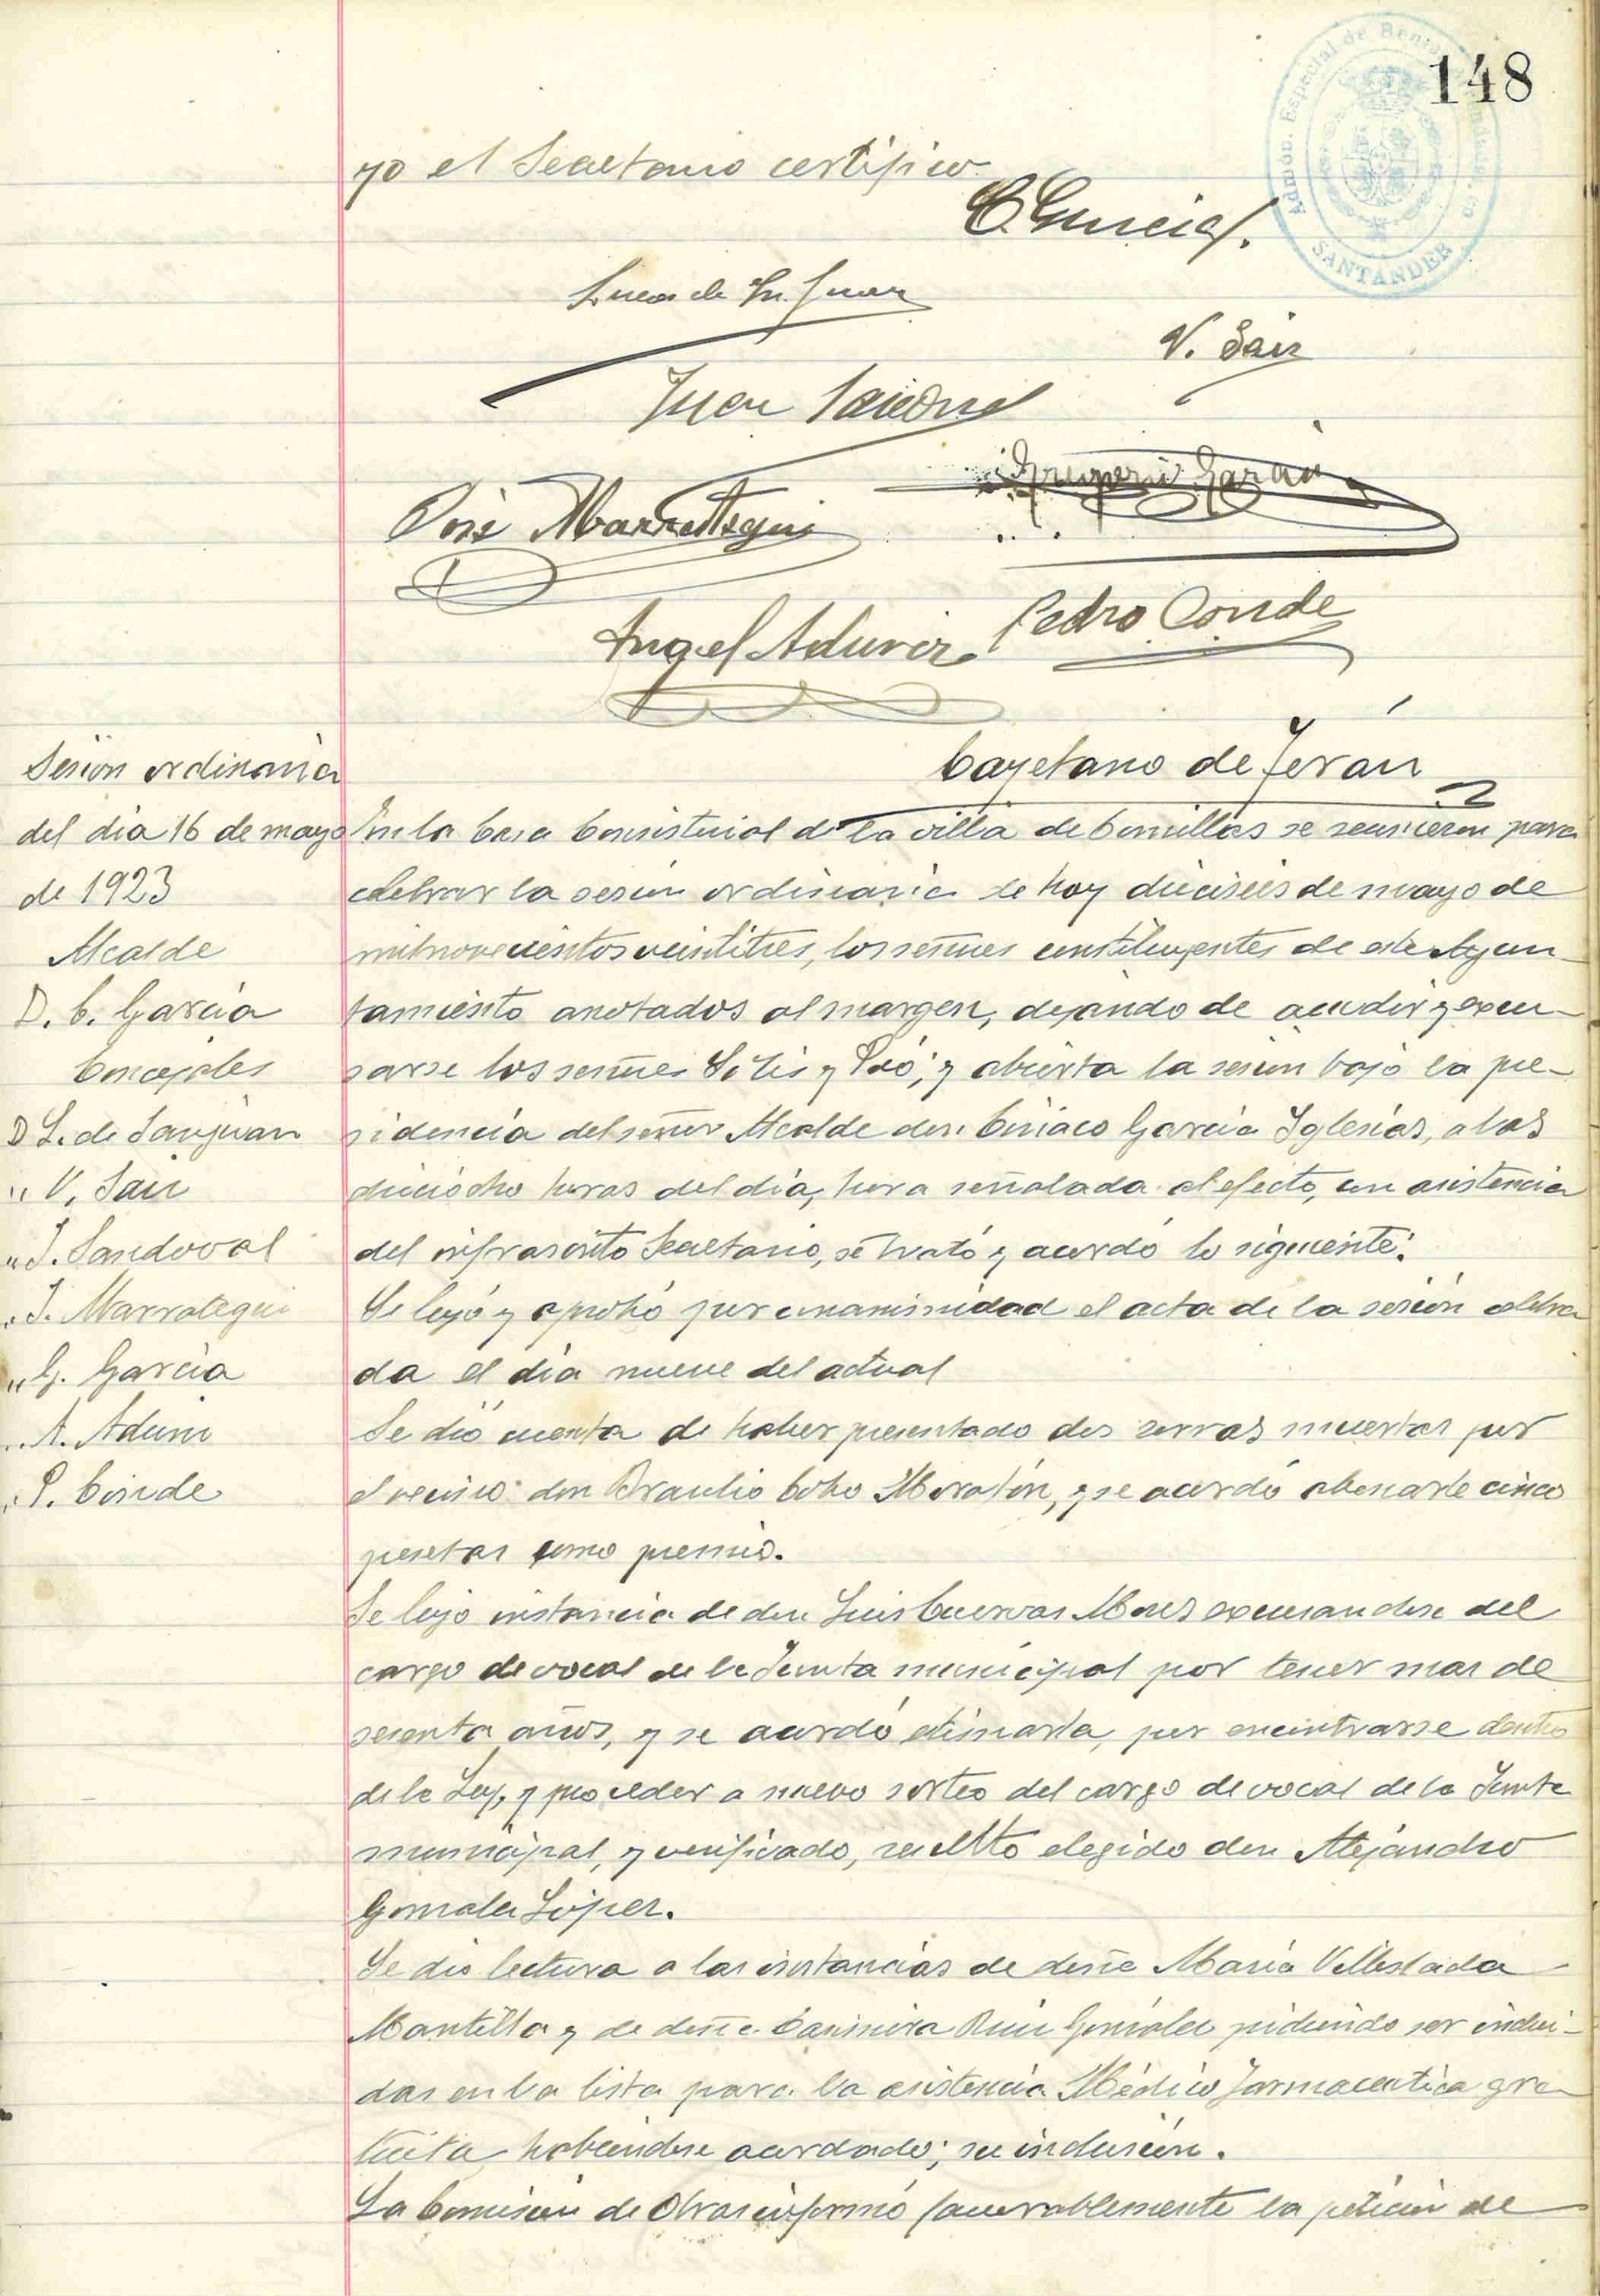 148
Admón. Especial de Rentas
SANTANDER
yo el Secretario certifico
C. Garcia
Lucas de Sn. Juan
V. Saiz
Juan Sandoval
Gregorio Garcia
José Marrategui
Pedro Conde
Angel Aduriz
Cayetano de Terán
Sesion ordinaria
del dia 16 de mayo
de 1923
Alcalde
D. C. García
Concejales
D L. de Sanjuan
" V. Saiz
" J. Sandoval
" J. Marrategui
" G. García
" A. Aduriz
" P. Conde
En la Casa Consistorial de la villa de Comillas se reunieron para
celebrar la sesion ordinaria de hoy dieciseis de mayo de
mil novecientos veintitres, los señores constituyentes de este Ayun-
tamiento anotados al margen, dejando de acudir y excu-
sarse los señores Solis y ; y abierta la sesion bajo la pre-
sidencia del señor Alcalde don Ciriaco García Iglesias, a las
dieciocho horas del dia, hora señalada al efecto, con asistencia
del infrascrito Secretario, se trató y acordó lo siguiente:
Se leyó y aprobó por unanimidad el acta de la sesión celebra
da el dia nueve del actual
Se dió cuenta de haber presentado dos zorras muertas por
el vecino don Braulio Cobo Moratón, y se acordó abonarle cinco
pesetas como premio.
Se leyó instancia de don Luis Cuevas Mons excusandose del
cargo de vocal de la Junta municipal por tener mas de
sesenta años, y se acordó estimarla, por encontrarse dentro
de la Ley, y proceder a nuevo sorteo del cargo de vocal de la Junta
municipal, y verificado, resultó elegido don Alejandro
Gonzalez López.
Se dio lectura a las instancias de doña María Villeslada
Mantilla y de doña Casimira Ruiz González pidiendo ser inclui-
das en la lista para la asistencia Médico farmaceutica gra
tuita habiendose acordado; su inclusión.
La Comision de Obras informó favorablemente la petición de